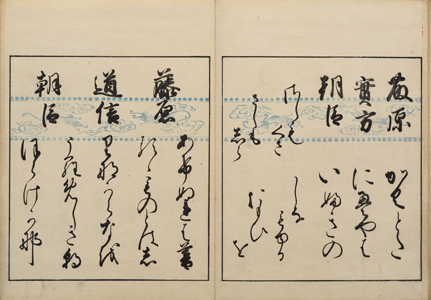 藤原
實方
朝臣
かくとた
にえやは
いふきの
さしも
くさ
さしもしら
しな
もゆる
おもひを
藤原
道信
朝臣
あけぬれは暮
るゝものとは志
りなからなを
うらめしき朝
ほらけか那